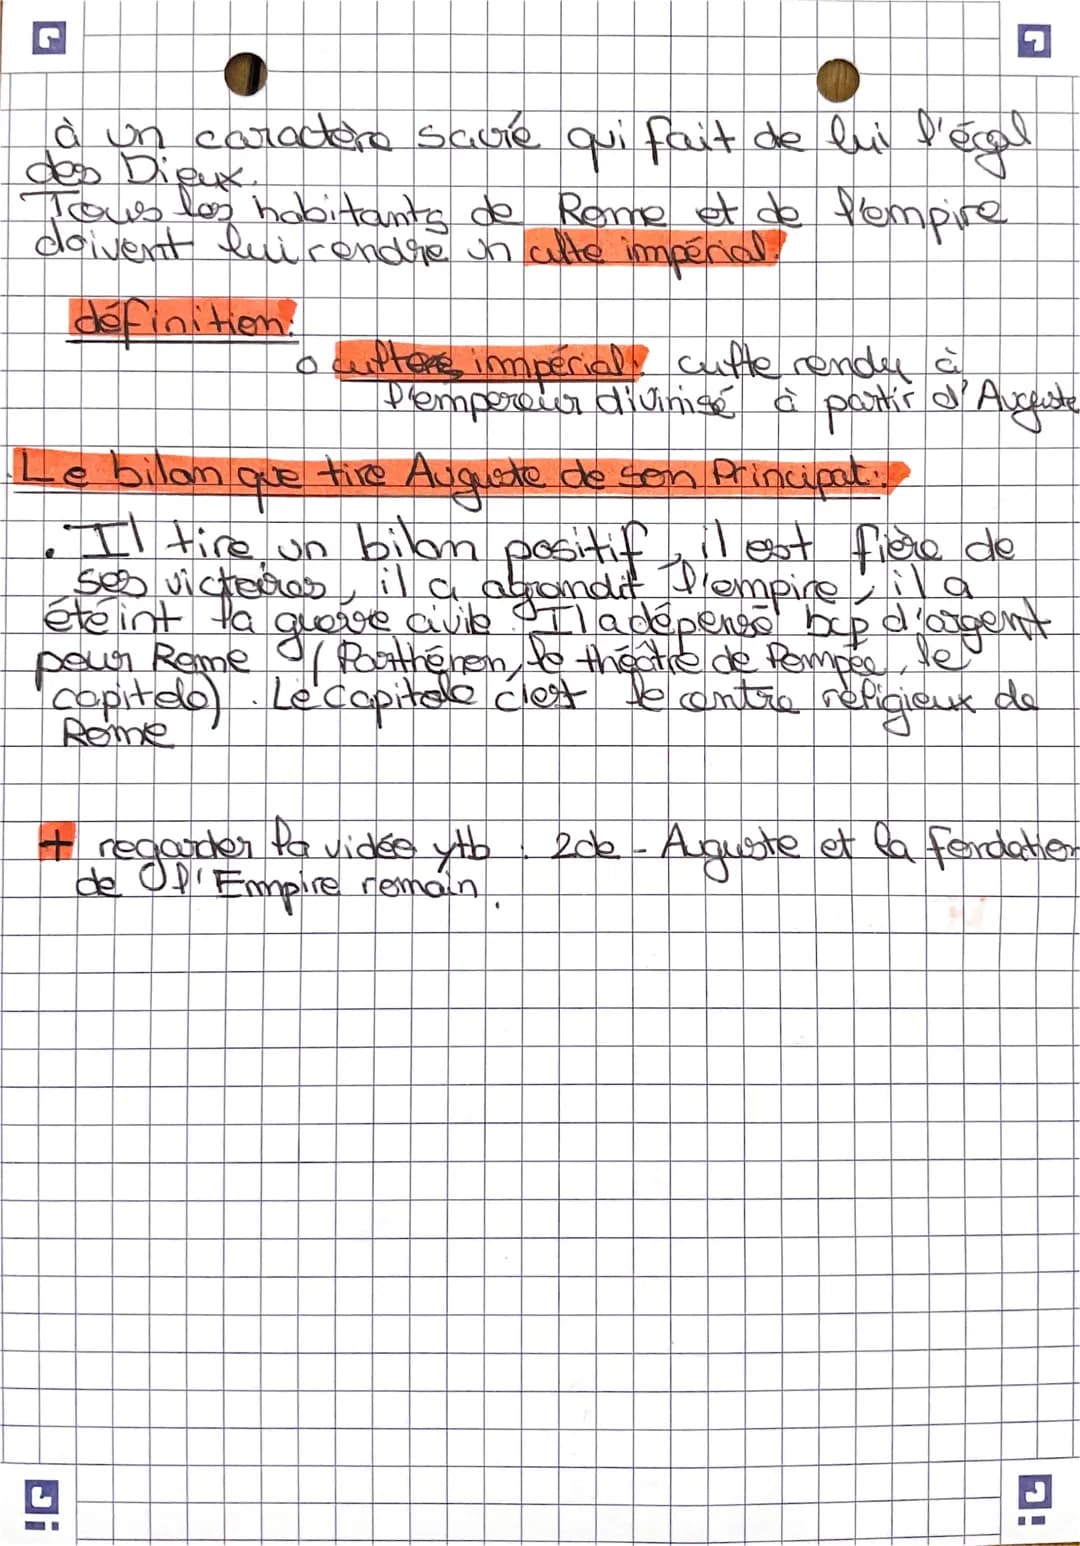 à un caractère sacré qui fait de lui l'égal
des Dieux.
Tous les habitants de Rome et de l'empire
doivent lui rendre un culte impérial.
définition:
o cultes impérial: culte rendu à
l'empereur divinisé à partir d'Auguste
Le bilan que tire Auguste de son Principat:
. Il tire un bilan positif, il est fière de
ses victoires, il a agrandit l'empire, il a
étéint la guerre civile. Il a dépensé bcp d'argent
pour Rome (Parthénon, le théâtre de Pompée, le
capitole). Le capitole c'est le centre religieux de
Rome
+ regarder la vidée ytb : 2de - Auguste et la fondation
de l'Emmpire romain.